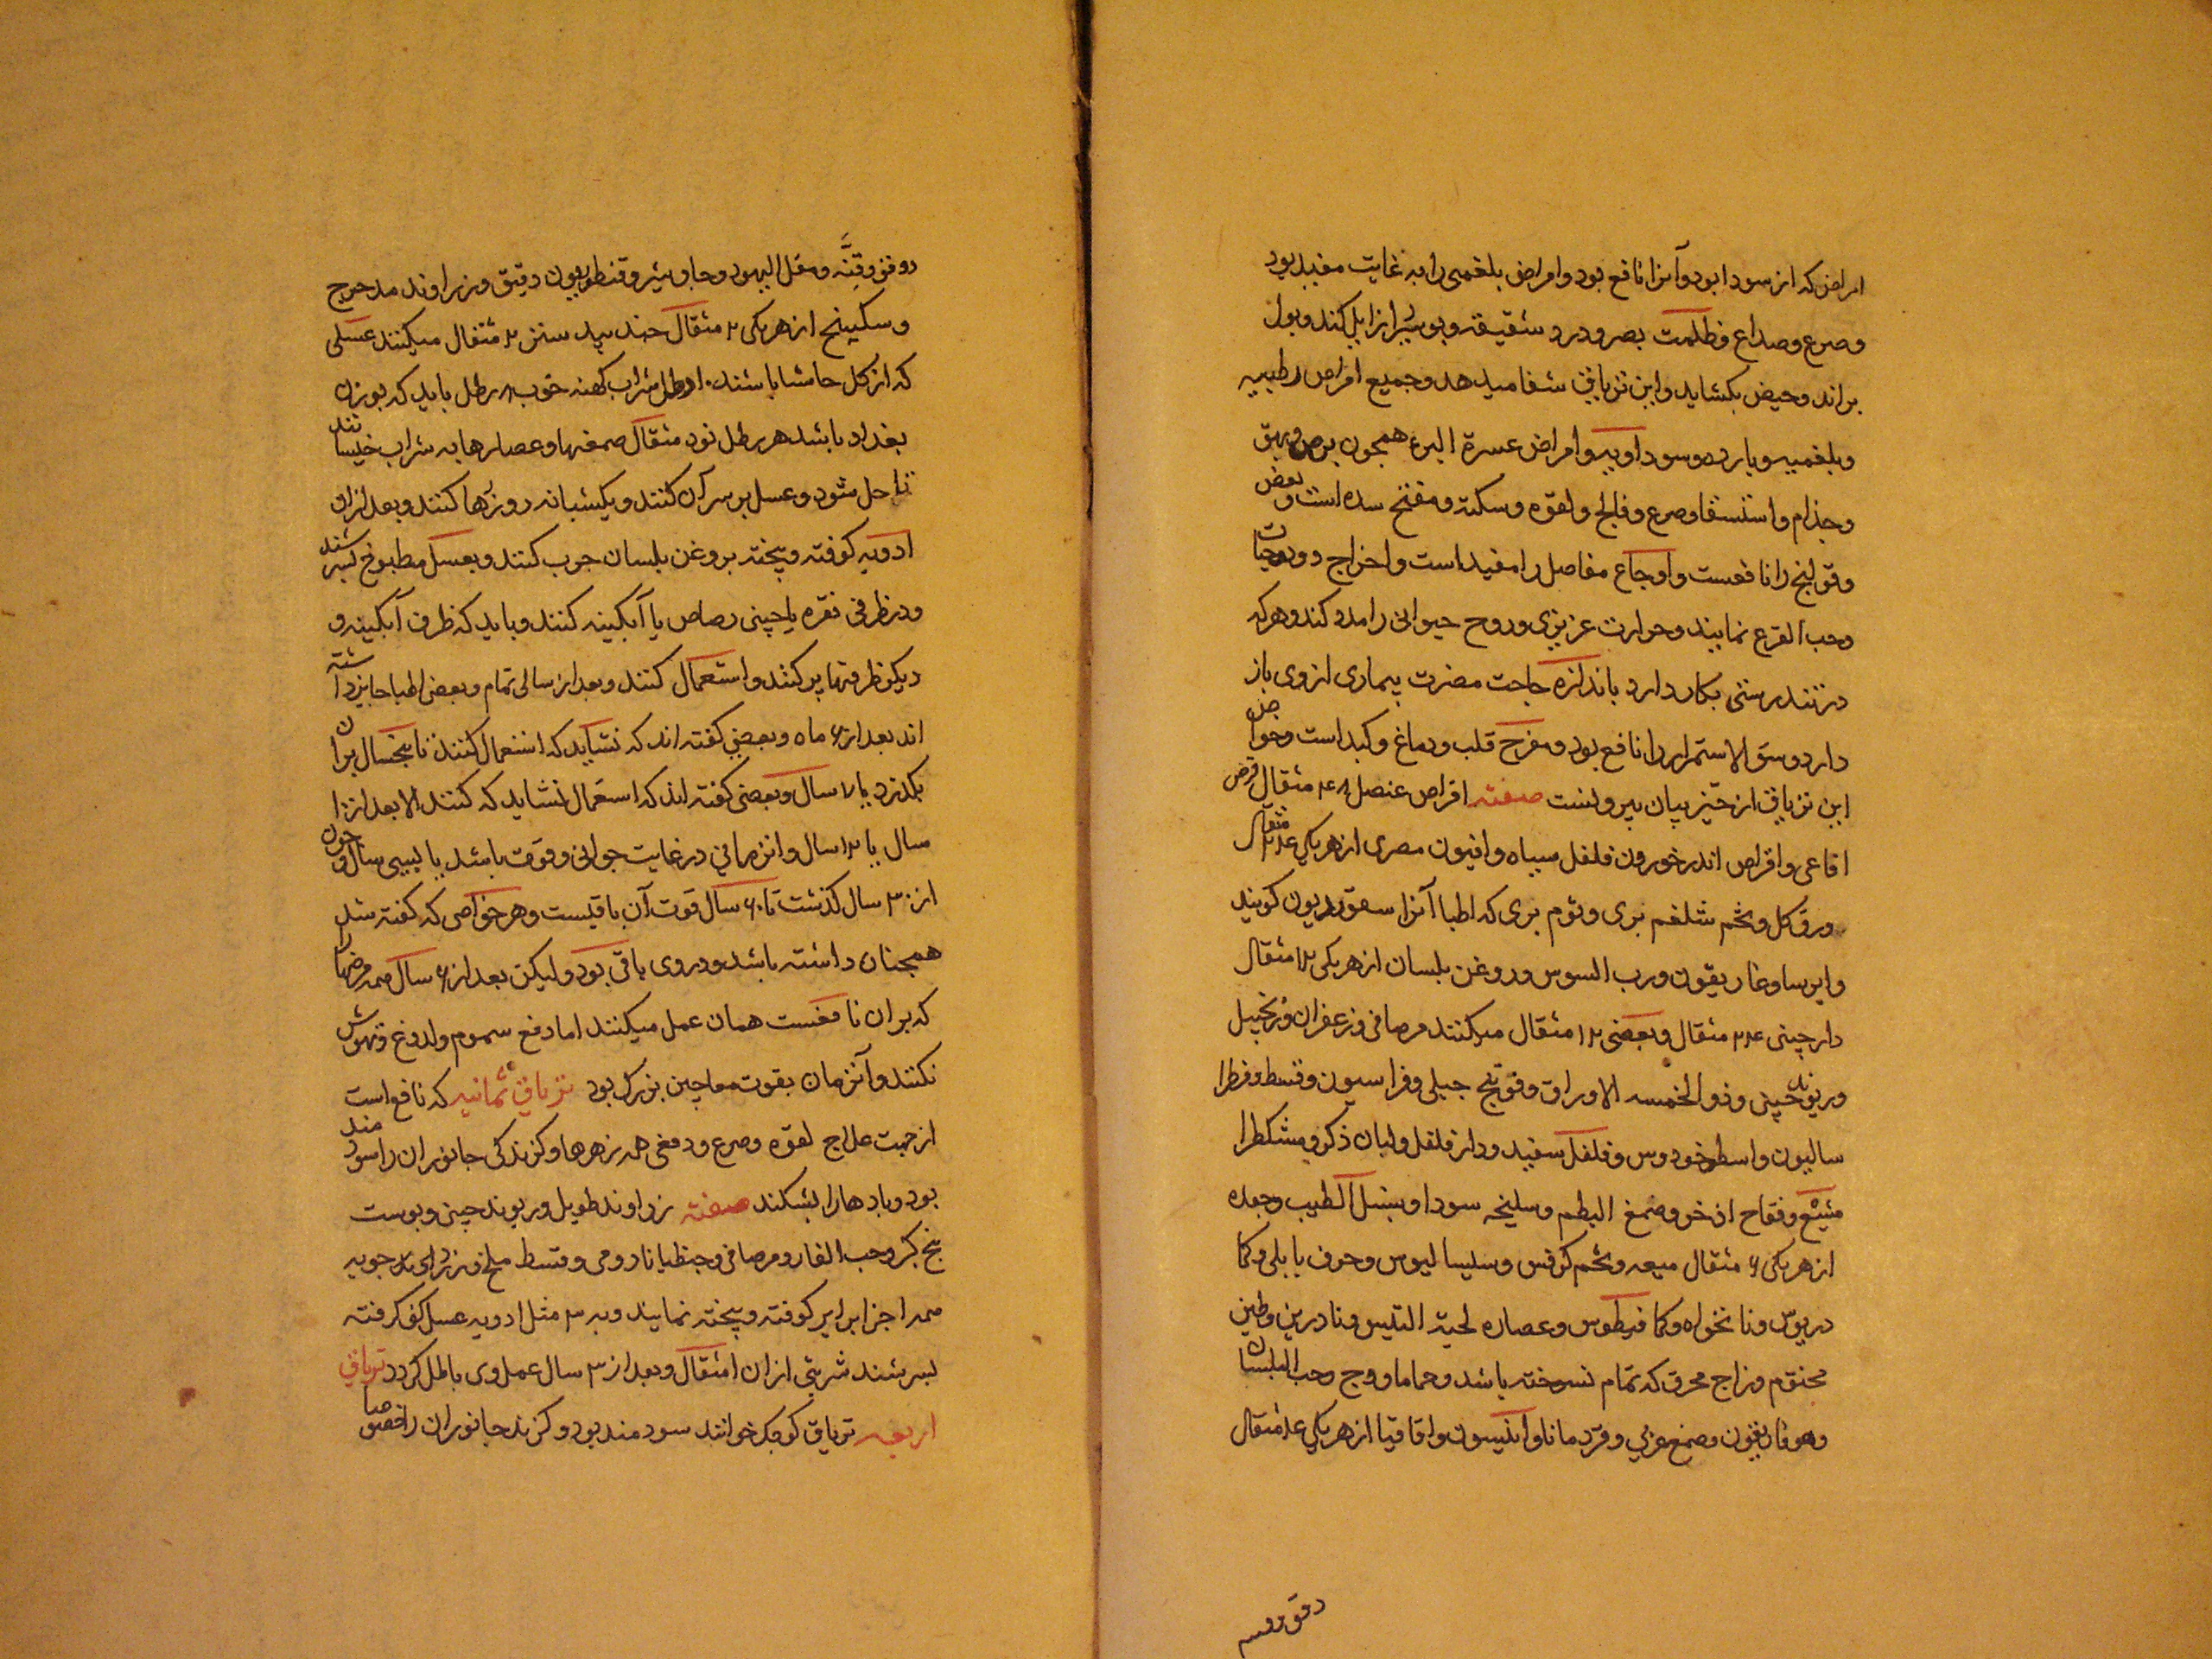 امراض که از سودا بود آنرا نافع بود و امراض بلغمی را به غایت مفید بود
و صرع و صداع و ظلمت بصر و درد شقیقه و بواسیر را زایل کند و بول
براند و حیض بکشاید و این تریاق شفا میدهد و جمیع امراض رطبیه
و بلغمیه و بارده و سوداویه و امراض عسرة البرء همچون برص و بهق
و جذام و استسقا و صرع و فالج و لقوه و سکته و مفتح سده است و بعض
و قولنج را نافعست و اوجاع مفاصل را مفید است و اخراج دود و حیات
و حب القرع نمایند و حرارت غریزی و روح حیوانی را مدد کند و هر که
در تندرستی بکار دارد باندازه حاجت مضرت بیماری از وی باز
دارد و سوء الاستمرار را نافع بود و مفرح قلب و دماغ و کبد است و خواص
این تریاق از حیز بیان بیرونست صفته اقراص عنصل ۴۸ مثقال قرص
افاعی و اقراص اندرخورون فلفل سیاه و افیون مصری از هر یکی ۲۴ مثقال
ورق کل و تخم شلغم بری و ثوم بری که اطبا آنرا سقوردیون کویند
و ایرسا و غاریقون و رب السوس و روغن بلسان از هر یکی ۱۲ مثقال
دارچینی ۲۴ مثقال و بعضی ۱۲ مثقال میکنند مرصافی و زعفران و زنجبیل
و ریوند چینی و ذو الخمسه الاوراق و فوتنج جبلی و فراسیون و قسط و فطرا
سالیون و اسطوخودوس و فلفل سفید و دارفلفل و لبان ذکر و مشکطرا
مشیع و فقاح اذخر و صمغ البطم و سلیخه سودا و سنبل الطیب و جعده
از هر یکی ۶ مثقال میعه و تخم کرفس و سیسالیوس و حرف بابلی و کما
دریوس و نانخواه و کمافیطوس و عصاره لحیة التیس و ناردین و طین
مختوم و زاج محرق که تمام نسوخته باشد و حماما و وج و حب البلسان
و هوفاریقون و صمغ عربی و قردمانا و انیسون و اقاقیا از هر یکی ۴ مثقال
دوقو و قنه
دوقو و قنّه و مقل الیهود و جاوشیر و قنطوریون دقیق و زراوند مدحرج
و سکبینج از هر یکی ۲ مثقال جند بیدستر ۲ مثقال میکنند عسلی
که از کل حاشا باشد ۱۰ رطل شراب کهنه خوب ۸ رطل باید که بوزن
بغداد باشد هر رطل نود مثقال صمغها و عصارها به شراب خیسانند
تا حل شود و عسل بر سر آن کنند و یکشبانه روز رها کنند و بعد از ان
ادویه کوفته و پخته بروغن بلسان چرب کنند و بعسل مطبوخ بسرشند
و در ظرفی نقره یا چینی رصاص یا آبکینه کنند و باید که ظرف آبکینه و
دیکر ظرفها پر کنند و استعمال کنند و بعد از سالی تمام و بعضی اطبا جایز داشته
اند بعد از ۶ ماه و بعضی کفته اند که نشاید که استعمال کنند تا پنجسال بران
بکذرد یا ۷ سال و بعضی کفته اند که استعمال نشاید که کنند الا بعد از ۱۰
سال یا ۱۲ سال و انزمانی در غایت جوانی و قوت باشد یا بیسی سال و چون
از ۳۰ سال کذشت تا ۶۰ سال قوت آن باقیست و هر خواصی که کفته شد
همچنان داشته باشد و در وی باقی بود و لیکن بعد از ۶۰ سال همه مرضها را
که بران نافعست همان عمل میکنند اما دفع سموم و لدوغ و نهوش
نکنند و آنزمان بقوت معاجین بزرک بود تریاق ثمانیه که نافع است
از جهت علاج لقوه و صرع و دفعی همه زهرها و کزندکی جانوران را سودمند
بود و بادها را بشکند صفته زراوند طویل و ریوند چینی و پوست
بیخ کبر و حب الغار و مرصافی و جنطیانا رومی و قسط تلخ و زردای جوبه
همه اجزا برابر کوفته و پخته نمایند و به ۳ مثل ادویه عسل کف کرفته
بسرشند شربتی از ان ۱ مثقال و بعد از ۳ سال عمل وی باطل کردد تریاق
اربعه تریاق کوچک خوانند سودمند بود و کزند جانوران را خصوصا